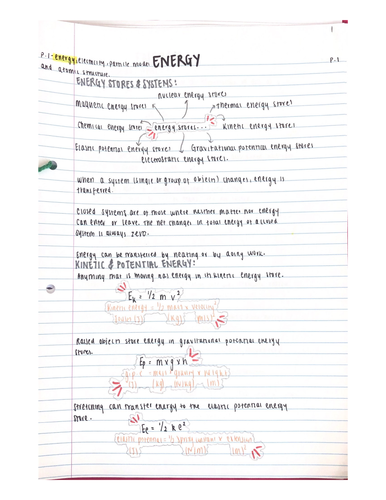 1
P.1 - energy, electricity, particle model ENERGY P.1
and atomic structure.
ENERGY STORES & SYSTEMS:
nuclear energy stores
Magnetic energy stores thermal energy stores
Chemical energy stores energy stores... Kinetic energy stores
Elastic potential energy stores Gravitational potential energy stores
electrostatic energy stores.
when a system (single or group of objects) changes, energy is
transferred.
Closed systems are of those where neither matter nor energy
can enter or leave. The net changes in total energy of a closed
system is always zero.
Energy can be transferred by heating or by doing work.
KINETIC & POTENTIAL ENERGY:
Anything that is moving has energy in its kinetic energy store.
Ek = 1/2 m v²
kinetic energy = 1/2 mass x velocity²
(joules (J)) (kg) (m/s)
Raised objects store energy in gravitational potential energy
stores.
Ep = m x g x h
g.p.e = mass x gravity x height
(J) (kg) (N/kg) (m)
Stretching can transfer energy to the elastic potential energy
store.
Ee = 1/2 k e²
elastic potential = 1/2 spring constant x extension²
(J) (N/m) (m)